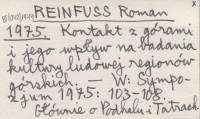 REINFUSS Roman
1975. Kontakt z górami
i jego wpływ na badania
kultury ludowej regionów
górskich. — W: Sympo-
zjum 1975: 103-108.
Głównie o Podhalu i Tatrach.